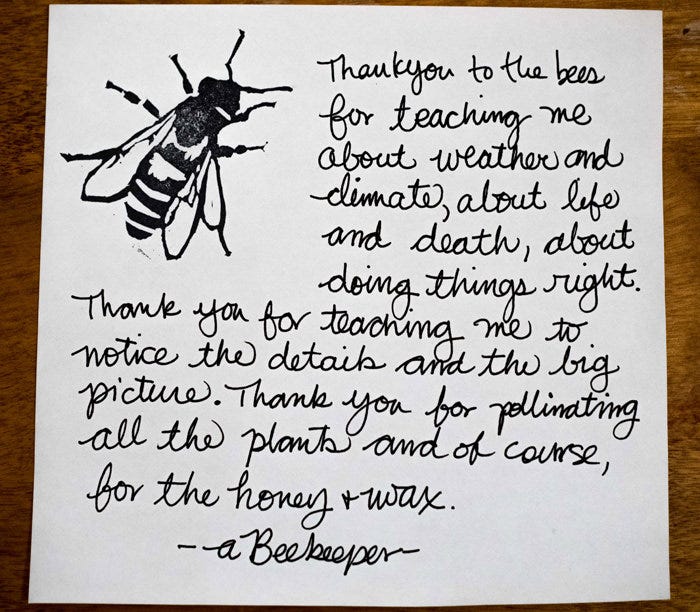 Thankyou to the bees
for teaching me
about weather and
climate, about life
and death, about
doing things right.
Thank you for teaching me to
notice the details and the big
picture. Thank you for pollinating
all the plants and of course,
for the honey + wax.
- a Beekeeper